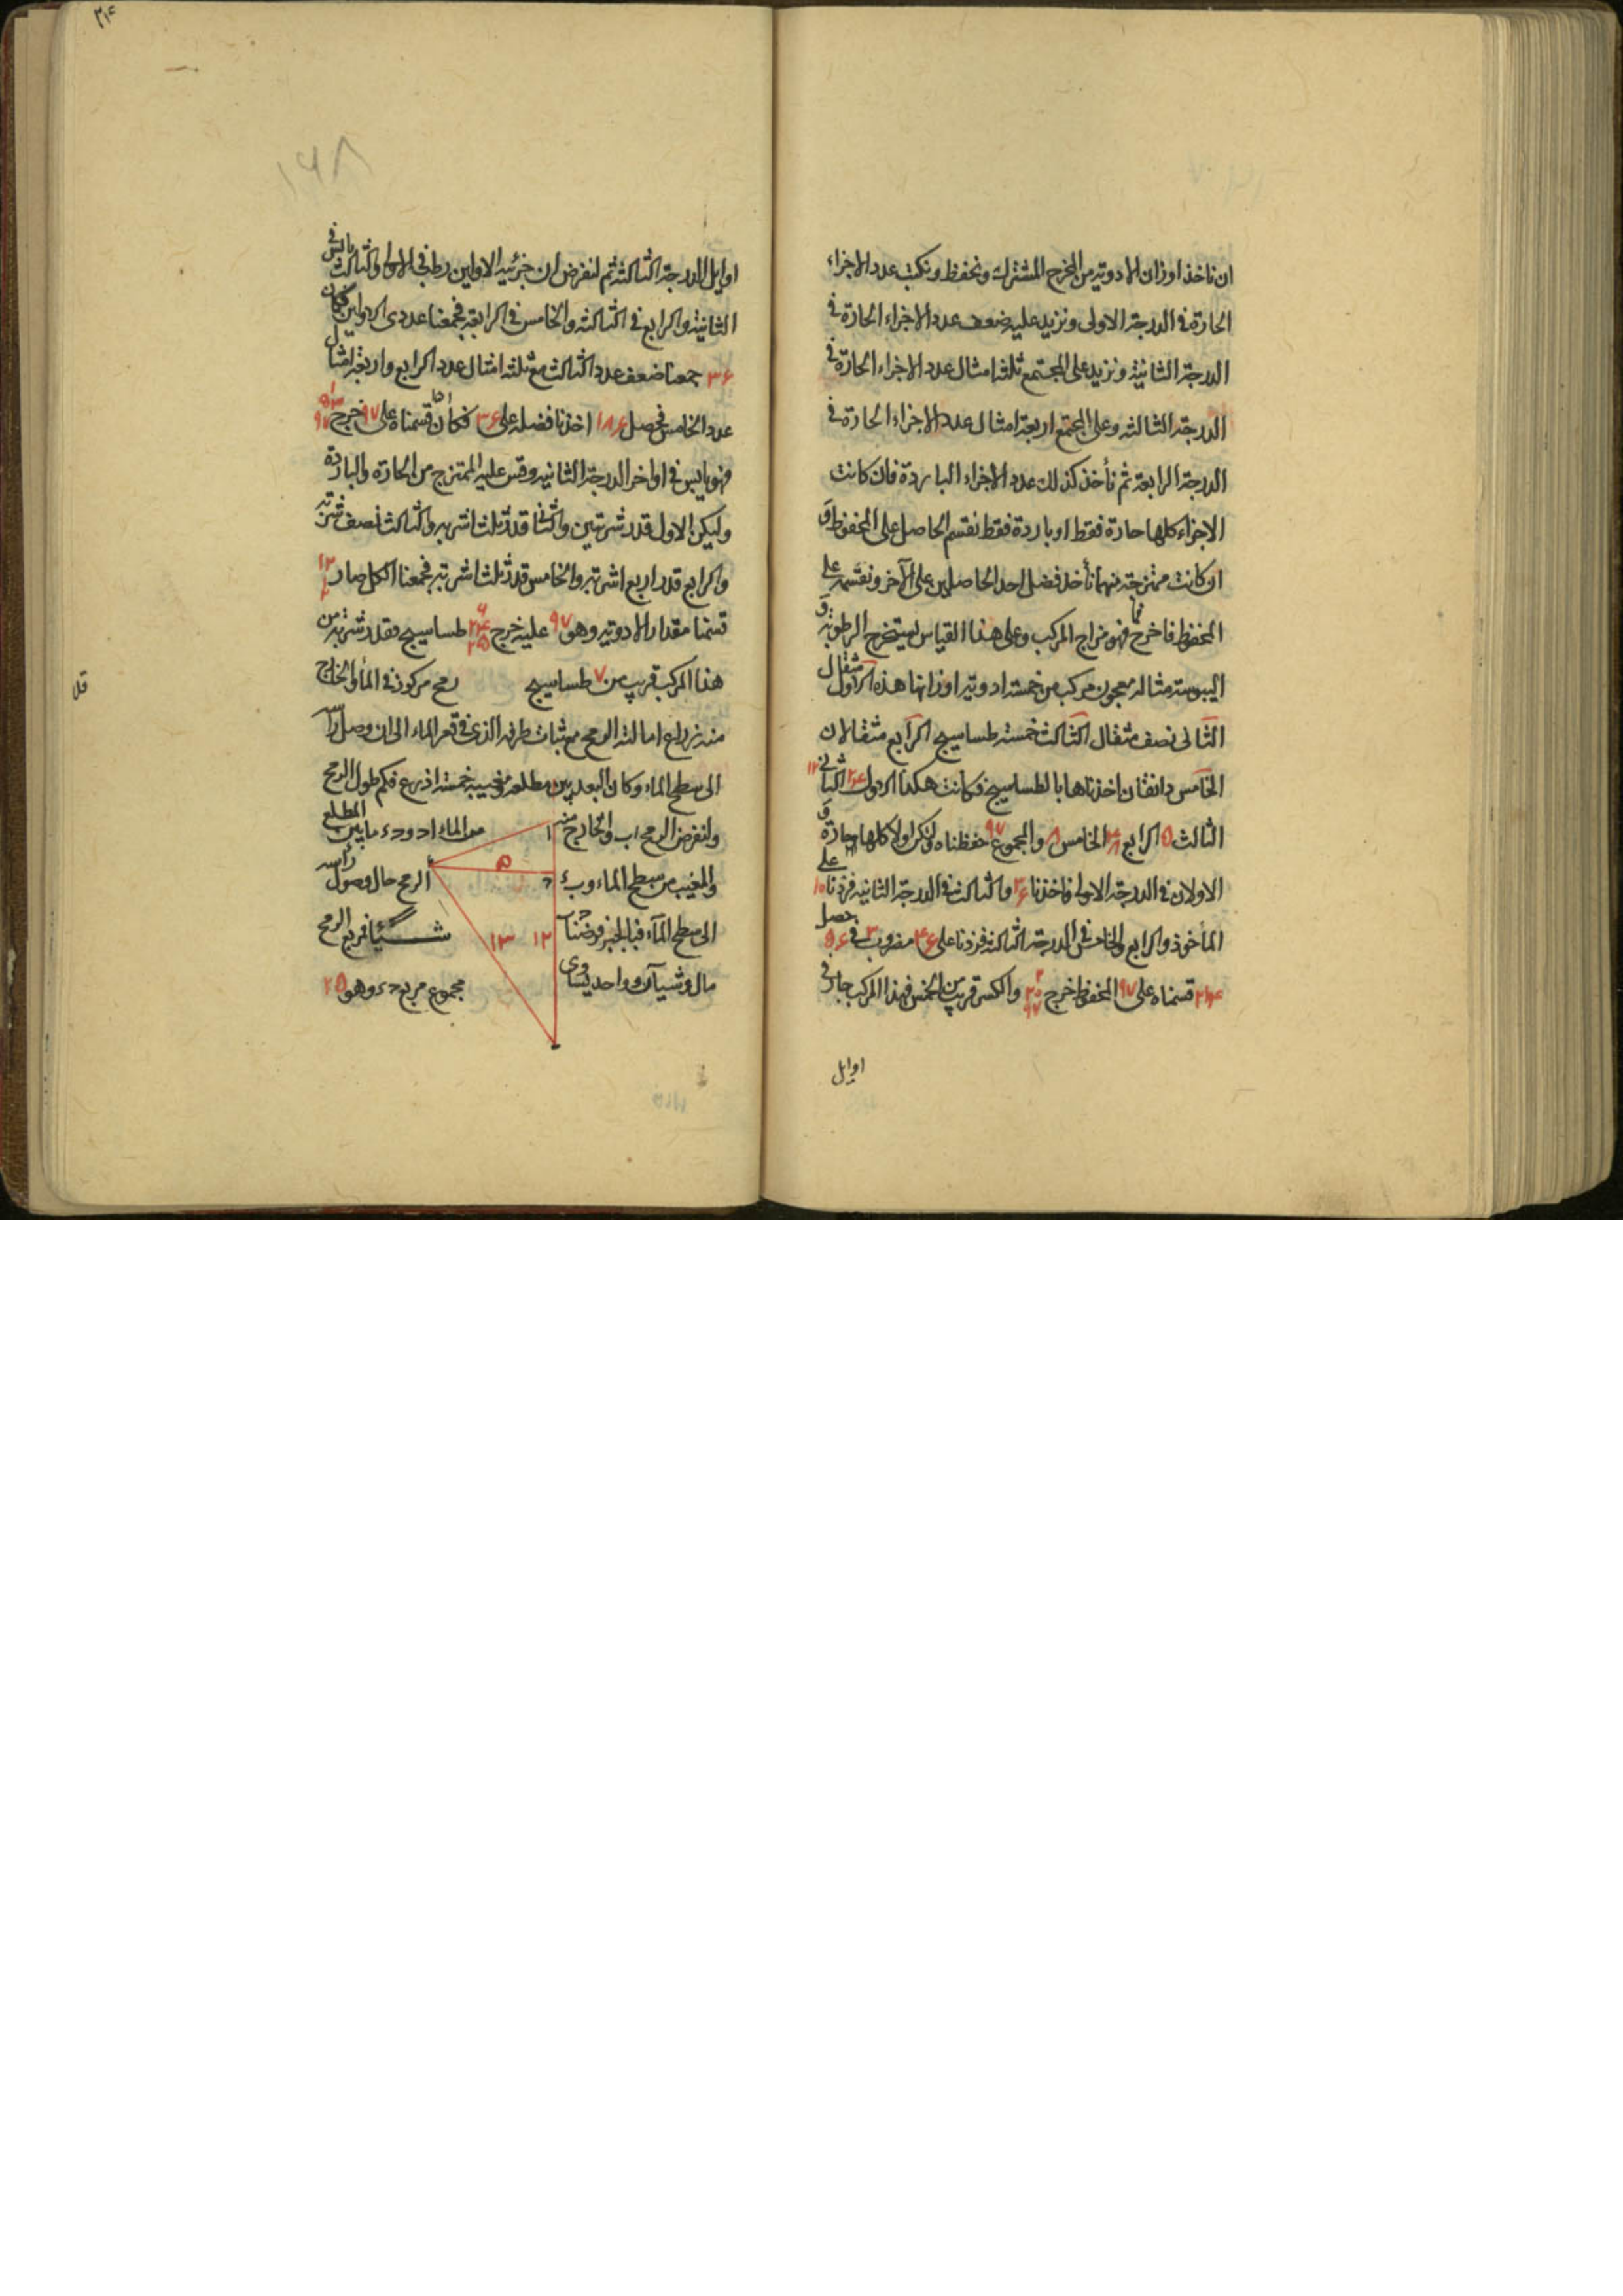 ان ناخذ اوزان الادوية من المخرج المشترك ونحفظ ونكتب عدد الاجزاء
الحارة فى الدرجة الاولى ونزيد عليه ضعف عدد الاجزاء الحارة فى
الدرجة الثانية ونزيد على المجتمع ثلثة امثال عدد الاجزاء الحارة فى
الدرجة الثالثة وعلى المجتمع اربعة امثال عدد الاجزاء الحارة فى
الدرجة الرابعة ثم نأخذ كذلك عدد الاجزاء الباردة فان كانت
الاجزاء كلها حارة فقط او باردة فقط نقسم الحاصل على المحفوظ و
ان كانت ممتزجة منهما نأخذ فضل احد الحاصلين على الآخر ونقسمه على
المحفوظ فما خرج فهو مزاج المركب وعلى هذا القياس يستخرج الرطوبة و
اليبوسة مثاله معجون مركب من خمسة ادوية اوزانها هذه الاول مثقال
الثانى نصف مثقال الثالث خمسة طساسيج الرابع مثقالان
الخامس دانقان اخذناها بالطساسيج فكانت هكذا الاول ۲۴ الثانى ۱۲
الثالث ۵ الرابع ۴۸ الخامس ۸ والمجموع ۹۷ حفظناه وليكن اولا كلها حارة و
الاولان فى الدرجة الاولى فاخذنا ۳۶ والثالث فى الدرجة الثانية فزدنا ۱۰ على
المأخوذ والرابع والخامس فى الدرجة الثالثة فزدنا على ۴۶ مضروب ۳ فى ۵۶ حصل
۲۱۴ قسمناه على ۹۷ المحفوظ خرج ۲ ۲۰ ۹۷ والكسر قريب من الخمس فهذا المركب حار فى
اوايل
۳۱۴
۱۶۸
اوايل الدرجة الثالثة ثم لنفرض ان جزئيه الاولين رطب فى الاولى والثالث يابس فى
الثانية والرابع فى الثالثة والخامس فى الرابعة فجمعنا عددى الاولين فكان
۳۶ جمعنا ضعف عدد الثالث مع ثلثة امثال عدد الرابع واربعة امثال
عدد الخامس فحصل ۱۸۶ اخذنا فضله على ۳۶ فكان قسمناه على ۹۷ خرج ۱ ۵۳ ۹۷
فهو يابس فى اواخر الدرجة الثانية وقس عليه الممتزج من الحارة والباردة
وليكن الاول قدر شربتين والثانى قدر ثلث اشربه والثالث نصف شربة
والرابع قدر اربع اشربة والخامس قدر ثلث اشربة فجمعنا الكل صار ۱۲
قسمنا مقدار الادوية وهو ۹۷ عليه خرج طساسيج فقدر شربة من
هذا المركب قريب من ۷ طساسيج رمح مركوز فى الماء والخارج
منه ذراع امالته الريح مع ثبات طرفه الذى فى قعر الماء الى ان وصل راسه
الى سطح الماء وكان البعد بين مطلعه ومغيبه خمسة اذرع فكم طول الرمح
ولنفرض الرمح اب والخارج منه من الماء ا د و د ء ما بين المطلع
والمغيب من سطح الماء و ب ء الرمح حال وصول رأسه
الى سطح الماء فبالجبر فرضنا شيئا فمربع الرمح
مال وشيآن وواحد يساوى مجموع مربع د ء وهو ۲۵
ا
ء
۵
د
۱۲
۱۳
ب